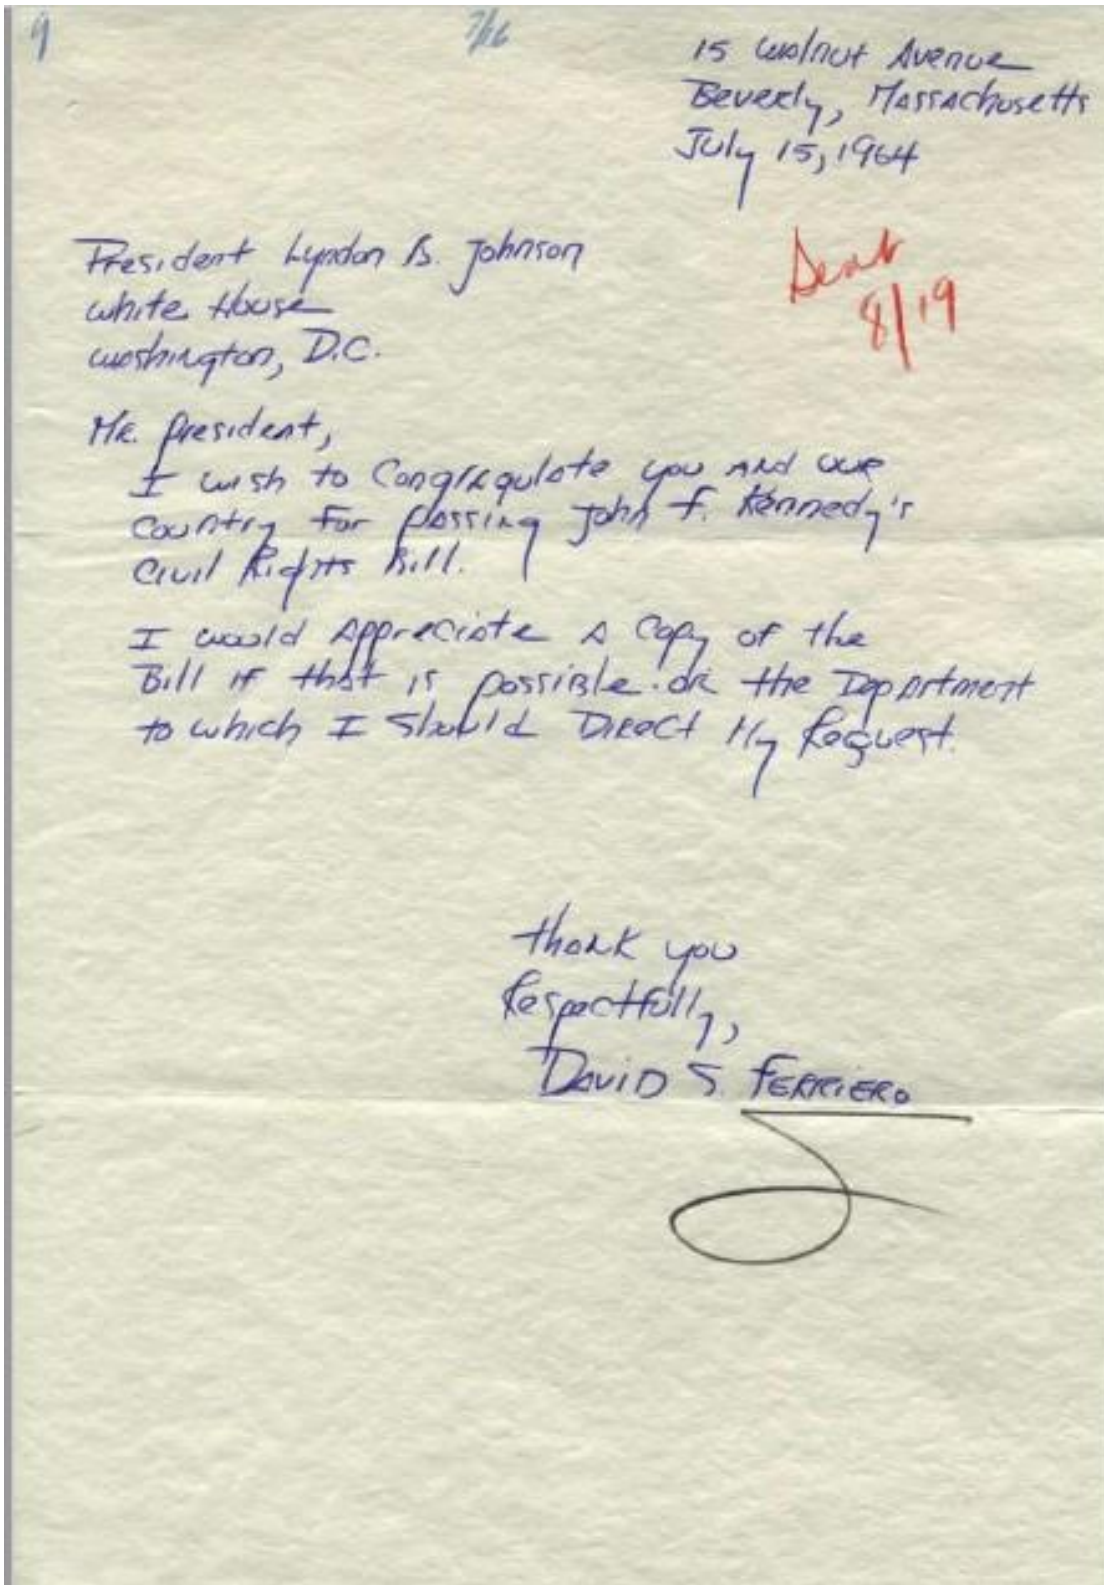 9
7/16
15 Walnut Avenue
Beverly, Massachusetts
July 15, 1964
Sent
8/19
President Lyndon B. Johnson
White House
Washington, D.C.
Mr. President,
I wish to Congragulate you and our
country for passing John F. Kennedy's
Civil Rights Bill.
I would appreciate a copy of the
Bill if that is possible or the Department
to which I should Direct My Request.
thank you
Respectfully,
DAVID S. FERRIERO